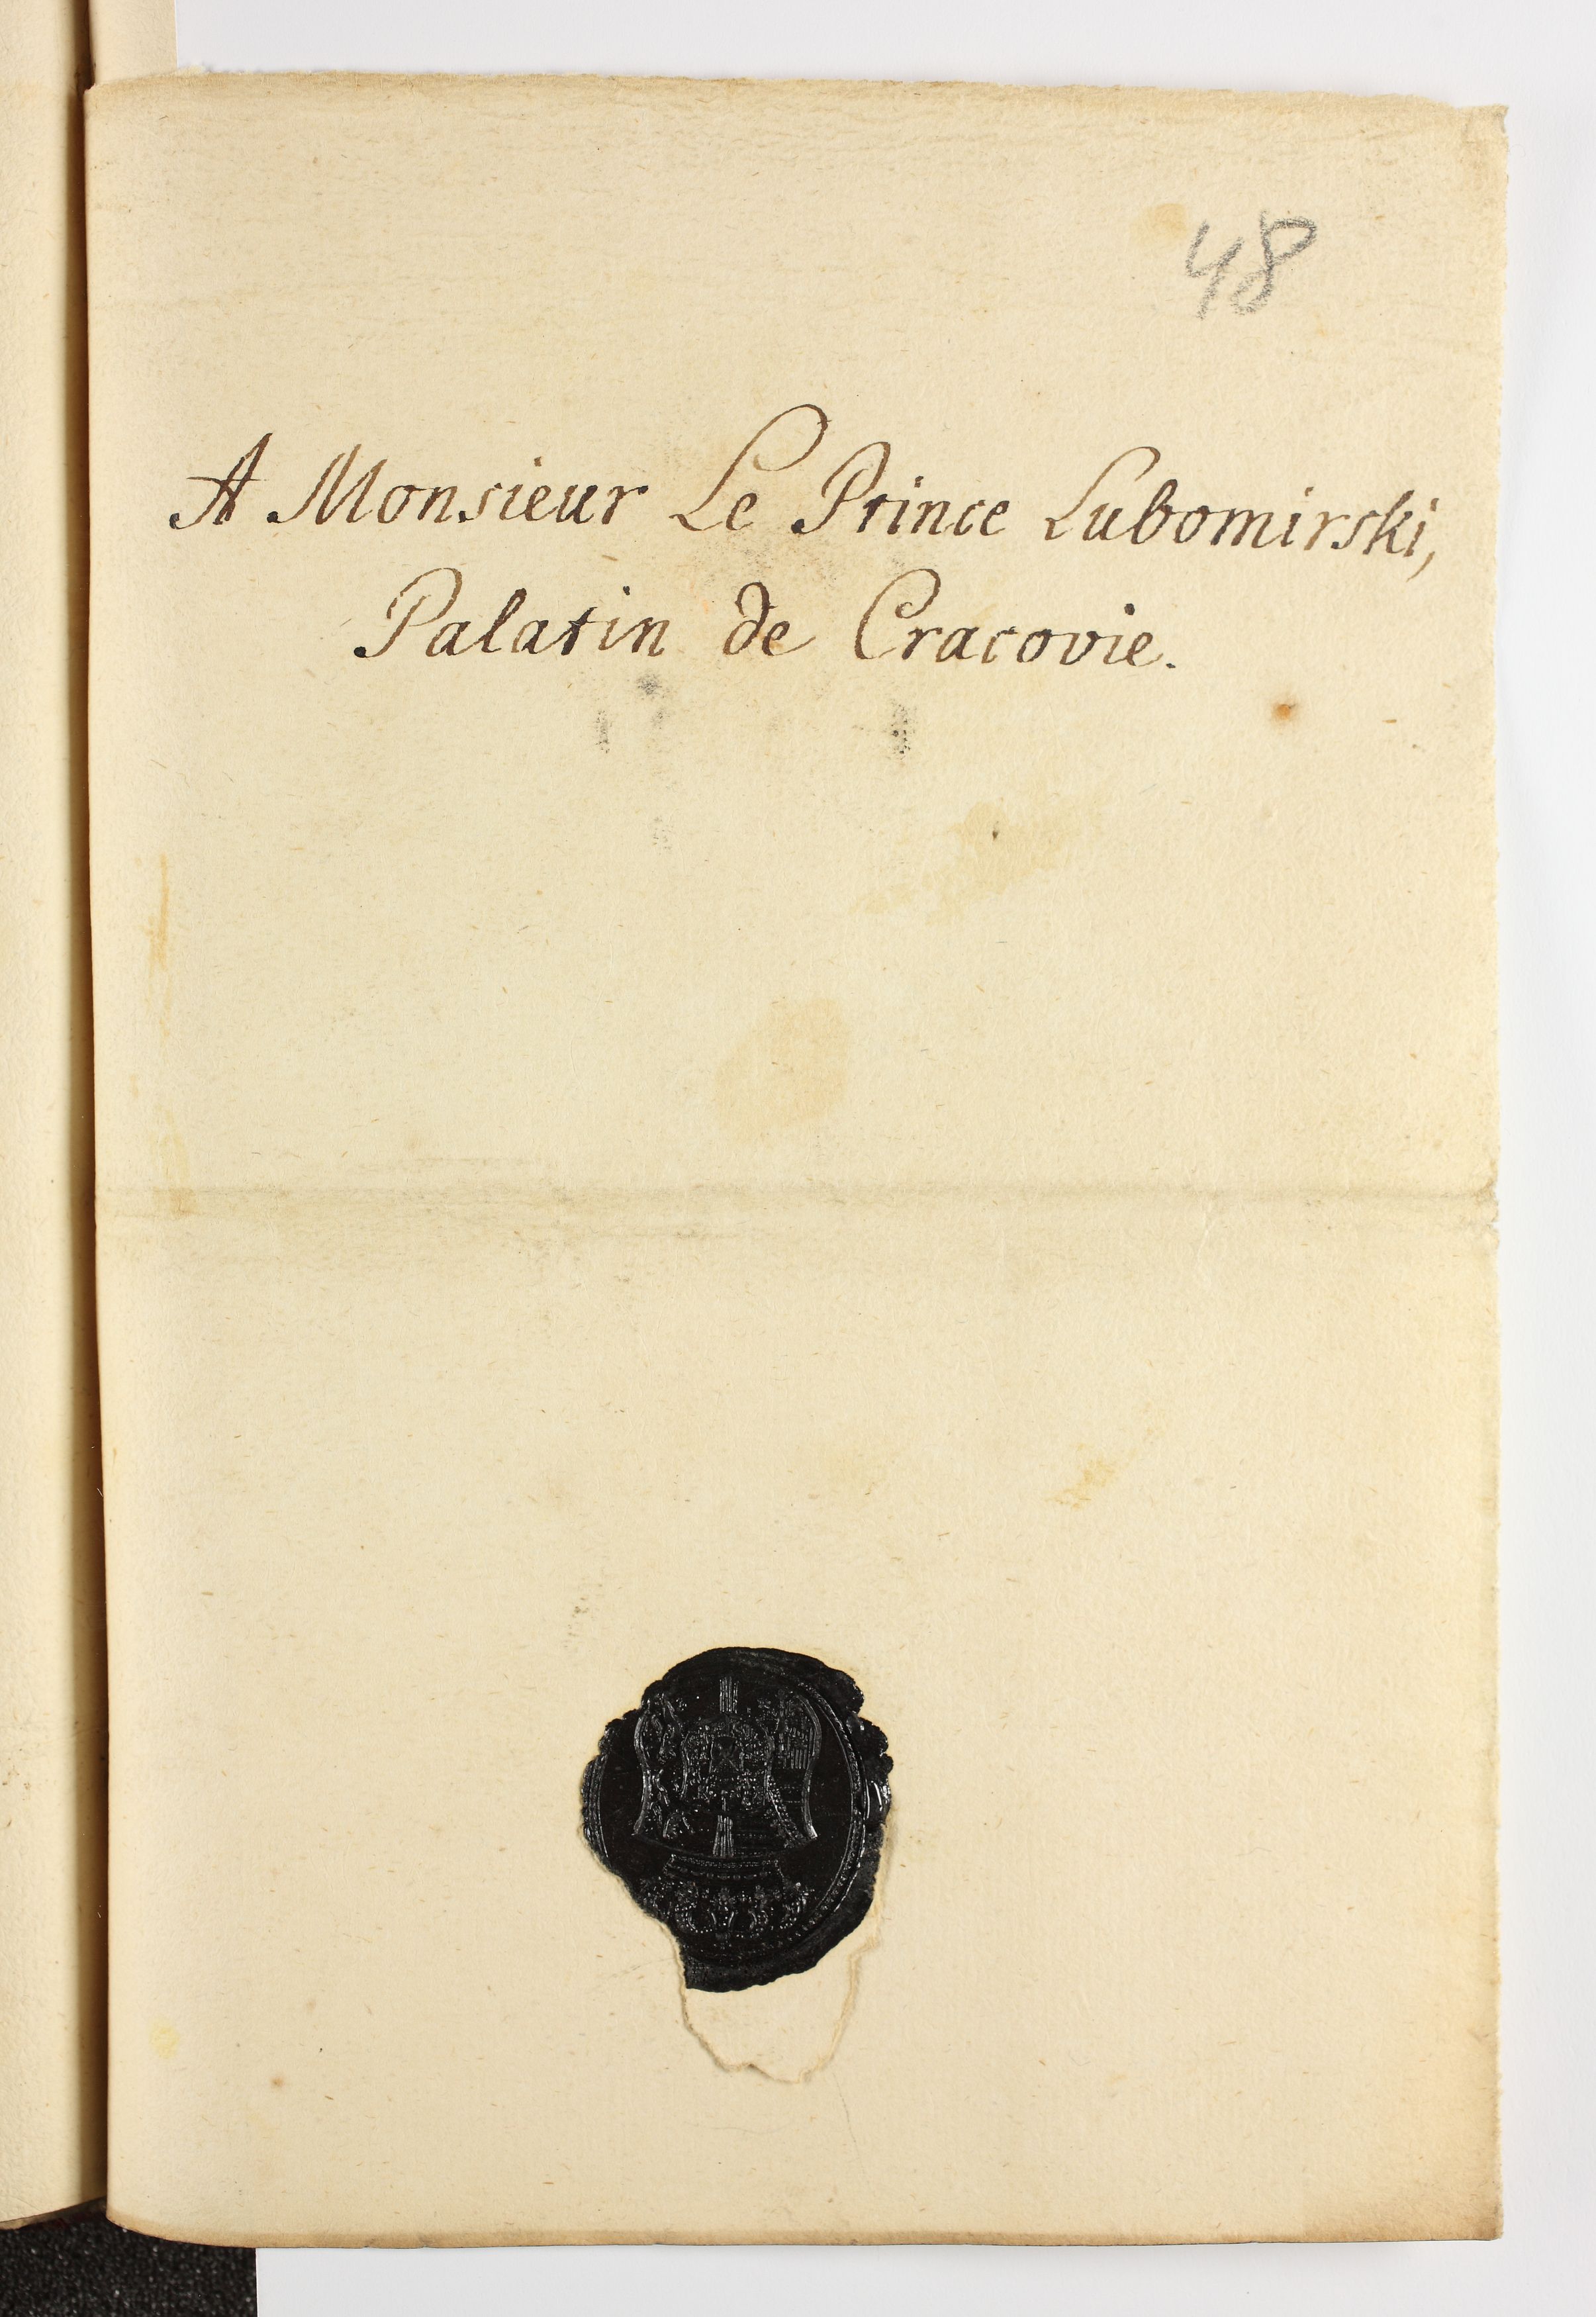 48
A Monsieur Le Prince Lubomirski,
Palatin de Cracovie.